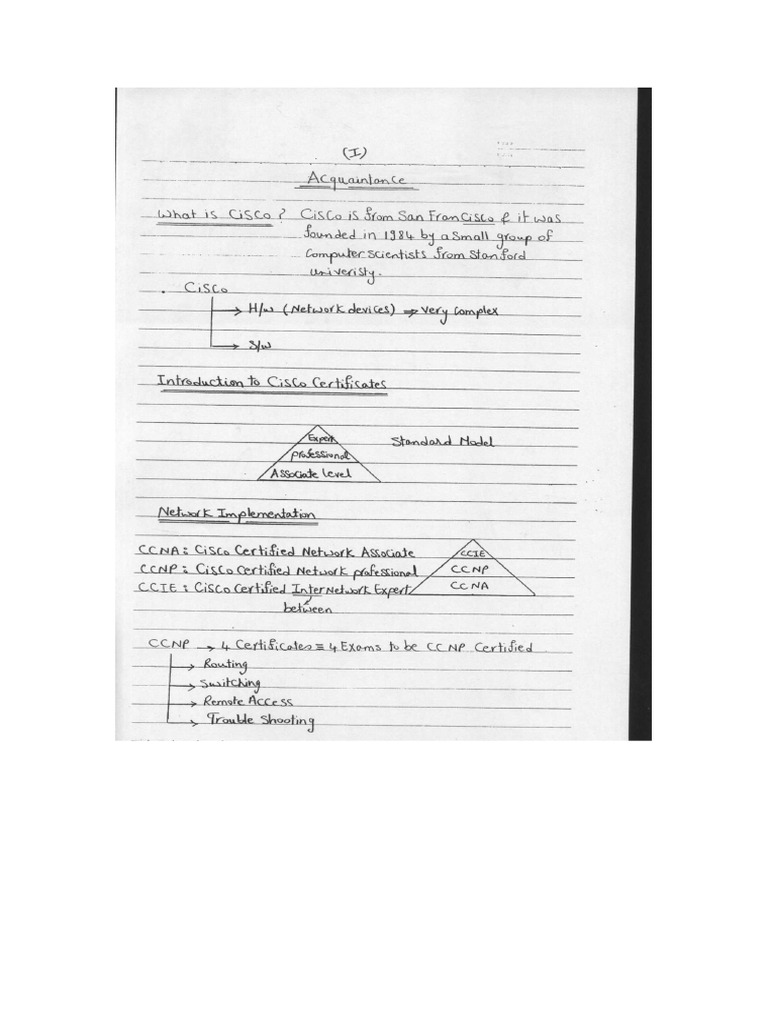 (I)
Acquaintance
What is Cisco? Cisco is from San Francisco & it was
founded in 1984 by a small group of
computer scientists from Stanford
univeristy.
. Cisco
→ H/w (Network devices) ⇒ very complex
→ S/w
Introduction to Cisco Certificates
Expert
professional
Associate Level
Standard Model
Network Implementation
CCNA : Cisco Certified Network Associate
CCNP : Cisco Certified Network professional
CCIE : Cisco Certified InterNetwork Expert
between
CCIE
CCNP
CCNA
CCNP → 4 Certificates ≡ 4 Exams to be CCNP Certified
→ Routing
→ Switching
→ Remote Access
→ Trouble Shooting